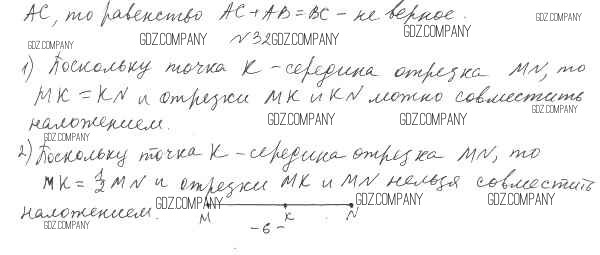 AC, то равенство AC + AB = BC - не верное.
GDZ.COMPANY
GDZ.COMPANY GDZ.COMPANY
GDZ.COMPANY N32 GDZ.COMPANY
1) Поскольку точка K - середина отрезка MN, то
MK = KN и отрезки MK и KN можно совместить
GDZ.COMPANY
наложением. GDZ.COMPANY GDZ.COMPANY
GDZ.COMPANY
2) Поскольку точка K - середина отрезка MN, то
MK = 1/2 MN и отрезки MK и MN нельзя совместить
наложением. GDZ.COMPANY GDZ.COMPANY GDZ.COMPANY
GDZ.COMPANY M K N
- 6 -